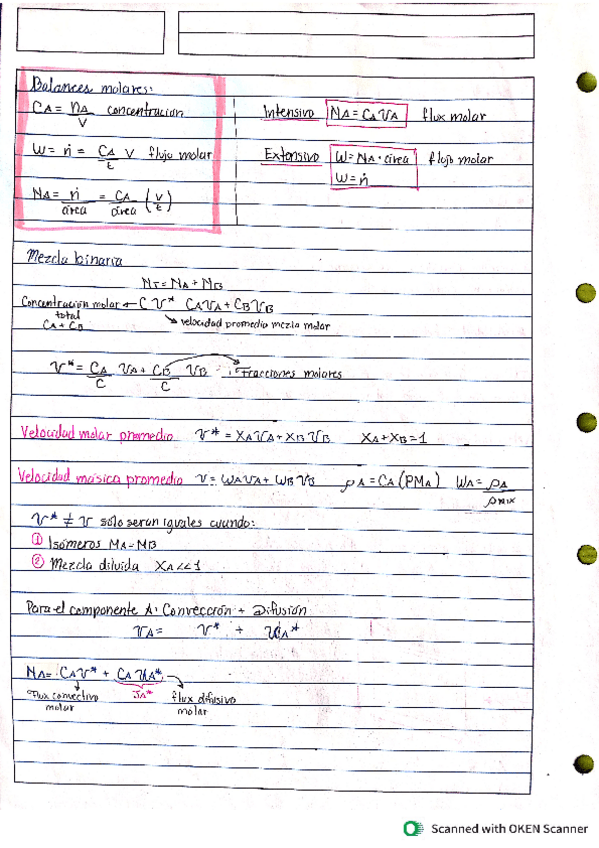 Balances molares:
CA = nA/V concentración
W = ṅ = CA/t V flujo molar
NA = ṅ/área = CA/área (V/t)
Intensivo NA = CAVA flux molar
Extensivo W = NA · área flujo molar
W = ṅ
Mezcla binaria
NT = NA + NB
Concentración molar ← C V* CAVA + CBVB
total
CA + CB
velocidad promedio mezcla molar
V* = CA/C VA + CB/C VB Fracciones molares
Velocidad molar promedio V* = XAVA + XBVB XA + XB = 1
Velocidad másica promedio V = WAVA + WBVB ρA = CA(PMA) WA = ρA/ρmix
V* ≠ V solo serán iguales cuando:
① Isómeros MA = MB
② Mezcla diluida XA << 1
Para el componente A: Convección + Difusión
VA = V* + UA*
NA = CAV* + CAUA*
Flux convectivo molar
JA*
flux difusivo molar
Scanned with OKEN Scanner